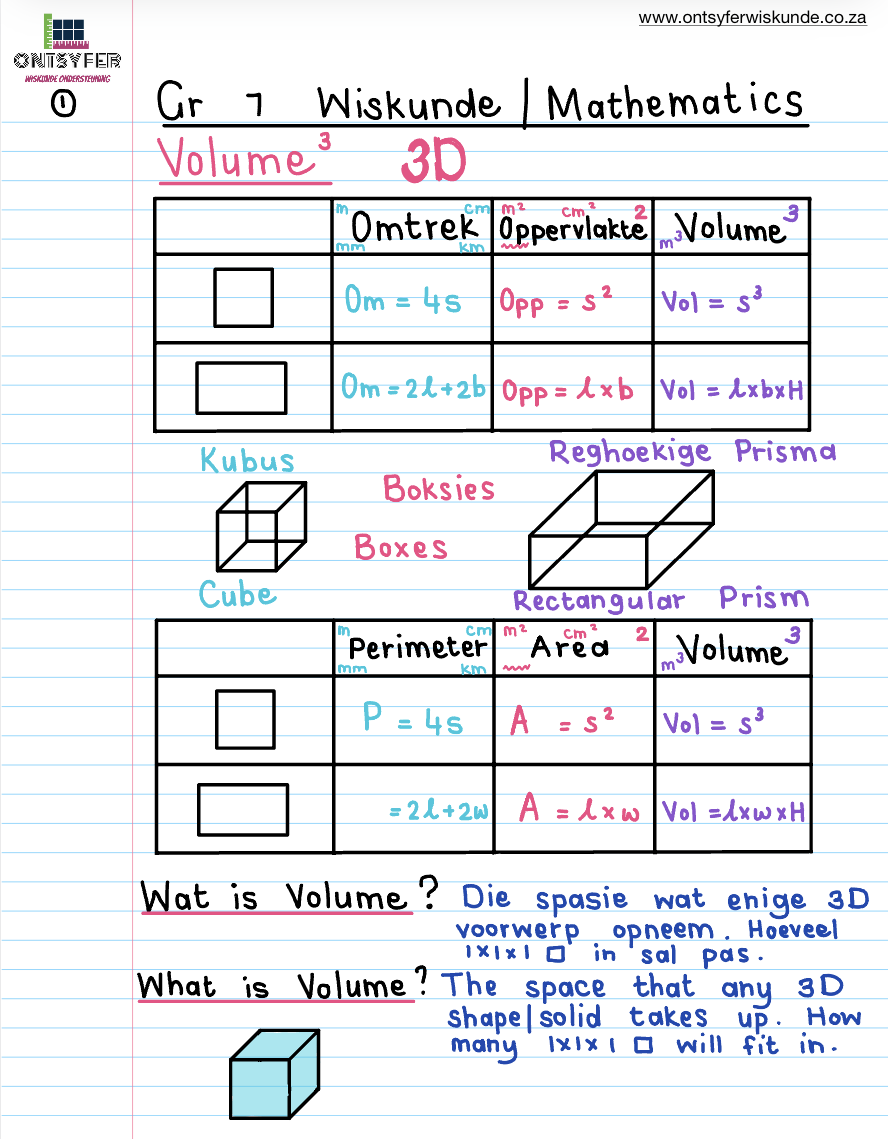 www.ontsyferwiskunde.co.za
ONTSYFER
WISKUNDE ONDERSTEUNING
1
Gr 7 Wiskunde | Mathematics
Volume³ 3D
m cm m² cm² 2 3
Omtrek Oppervlakte Volume
mm km m³
Om = 4s Opp = s² Vol = s³
Om = 2l+2b Opp = l×b Vol = l×b×H
Kubus Reghoekige Prisma
Boksies
Boxes
Cube Rectangular Prism
m cm m² cm² 2 3
Perimeter Area Volume
mm km m³
P = 4s A = s² Vol = s³
= 2l+2w A = l×w Vol = l×w×H
Wat is Volume? Die spasie wat enige 3D
voorwerp opneem. Hoeveel
1×1×1 □ in sal pas.
What is Volume? The space that any 3D
shape|solid takes up. How
many 1×1×1 □ will fit in.